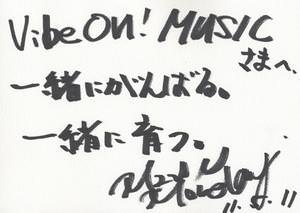 VibeON! MUSIC
さまへ。
一緒にがんばる。
一緒に育つ。
11.5.11